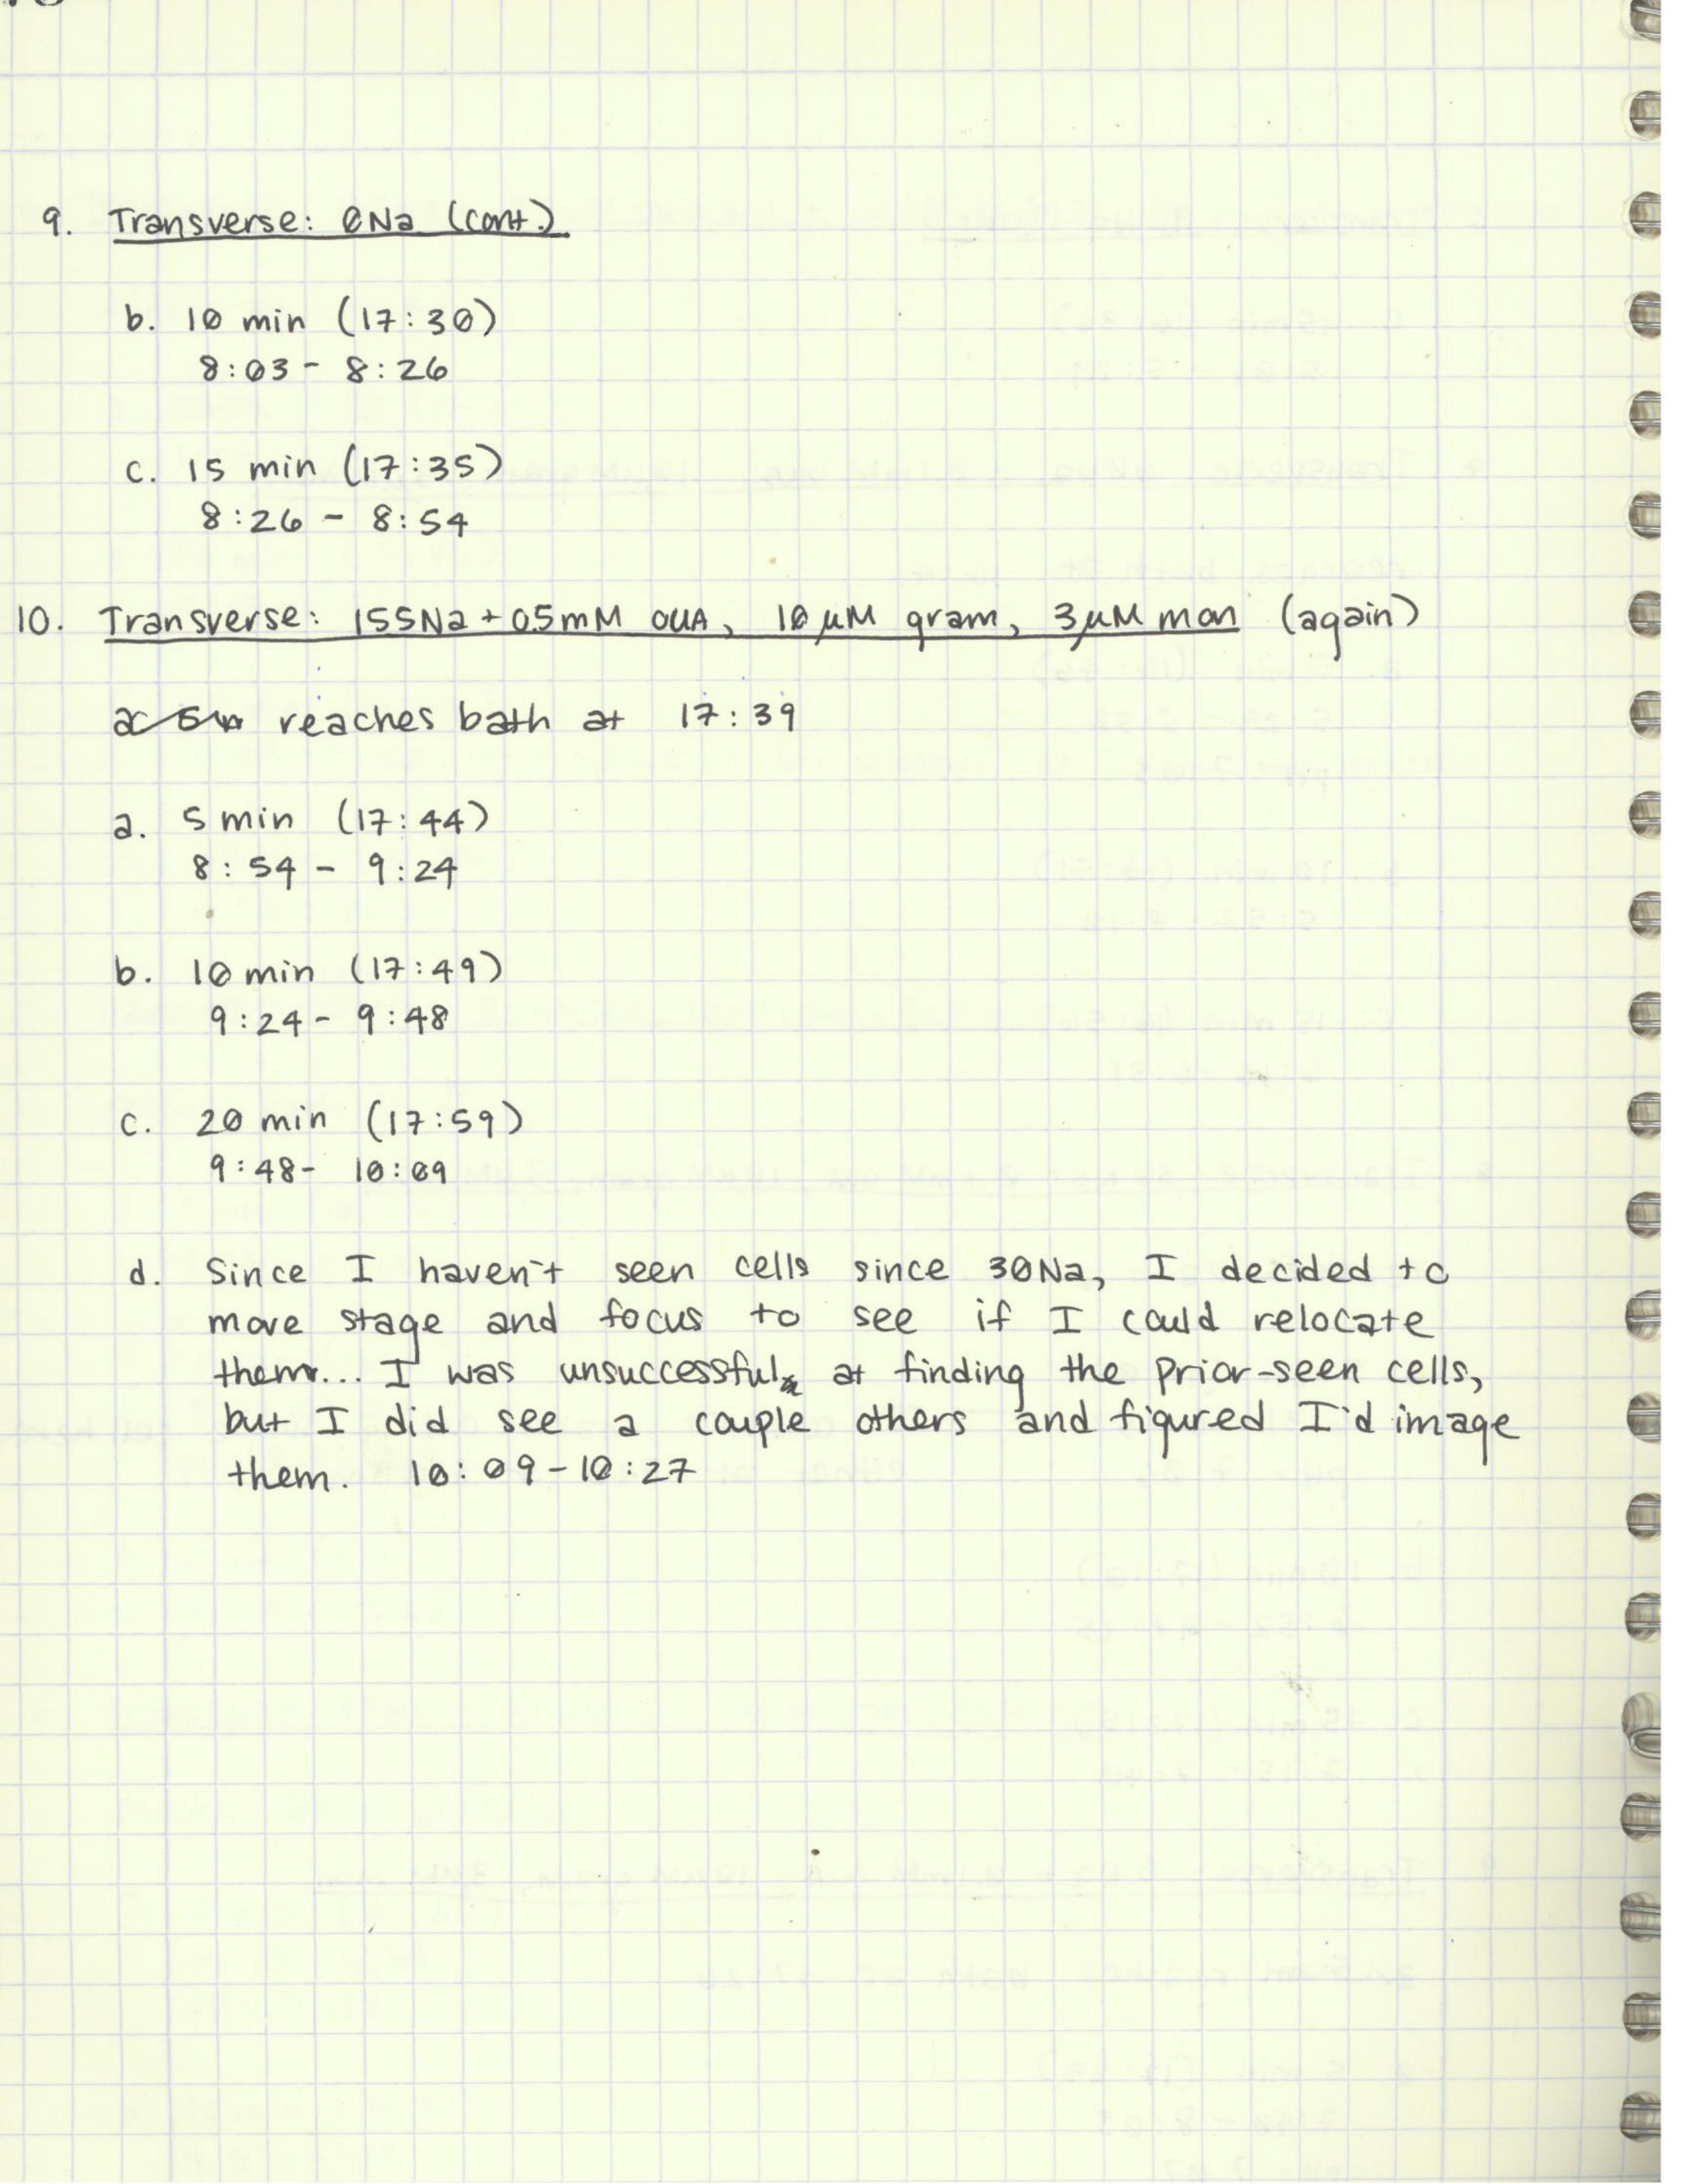 9. Transverse: 0Na (cont.)
b. 10 min (17:30)
8:03 - 8:26
c. 15 min (17:35)
8:26 - 8:54
10. Transverse: 155Na + 0.5mM OUA, 10 μM gram, 3μM mon (again)
reaches bath at 17:39
a. 5 min (17:44)
8:54 - 9:24
b. 10 min (17:49)
9:24 - 9:48
c. 20 min (17:59)
9:48 - 10:09
d. Since I haven't seen cells since 30Na, I decided to
move stage and focus to see if I could relocate
them... I was unsuccessful at finding the prior-seen cells,
but I did see a couple others and figured I'd image
them. 10:09-10:27